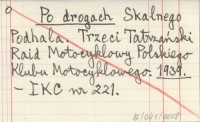 Po drogach Skalnego
Podhala. Trzeci Tatrzański
Raid Motocyklowy Polskiego
Klubu Motocyklowego. 1939.
- IKC nr 221.